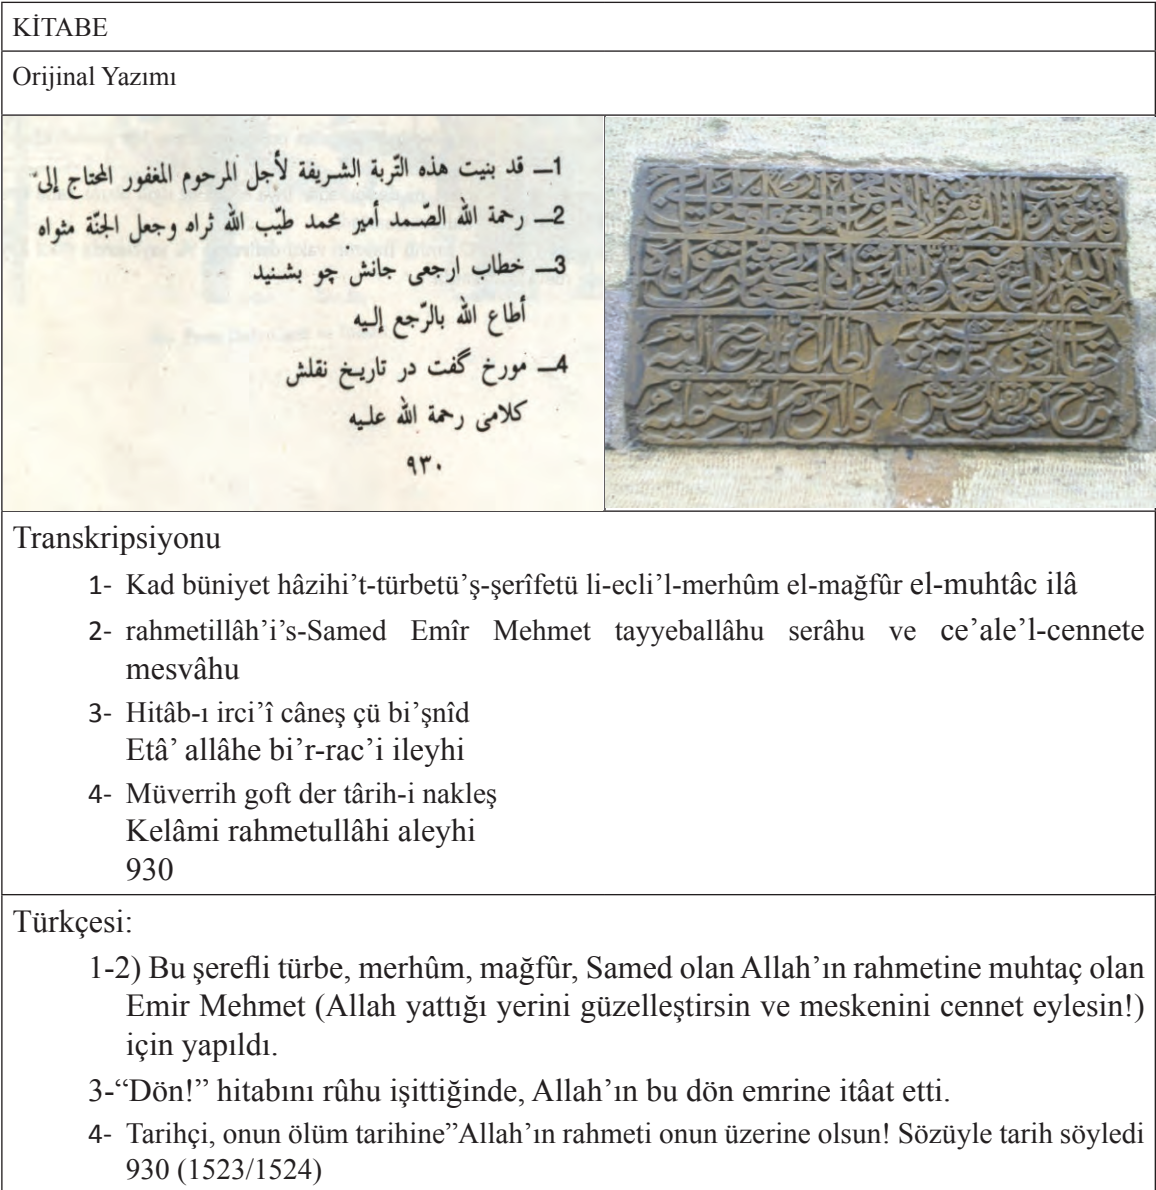 KİTABE
Orijinal Yazımı
1ـ قد بنيت هذه التّربة الشـريفة لأجل المرحوم المغفور المحتاج إلى
2ـ رحمة الله الصّـمد أمير محمد طيّب الله ثراه وجعل الجنّة مثواه
3ـ خطاب ارجعى جانش چو بشـنيد
أطاع الله بالرّجع إلـيه
4ـ مورخ گفت در تاريـخ نقلش
كلامى رحمة الله علـيه
٩٣٠
Transkripsiyonu
1- Kad büniyet hâzihi’t-türbetü’ş-şerîfetü li-ecli’l-merhûm el-mağfûr el-muhtâc ilâ
2- rahmetillâh’i’s-Samed Emîr Mehmet tayyeballâhu serâhu ve ce’ale’l-cennete
mesvâhu
3- Hitâb-ı irci’î câneş çü bi’şnîd
Etâ’ allâhe bi’r-rac’i ileyhi
4- Müverrih goft der târih-i nakleş
Kelâmi rahmetullâhi aleyhi
930
Türkçesi:
1-2) Bu şerefli türbe, merhûm, mağfûr, Samed olan Allah’ın rahmetine muhtaç olan
Emir Mehmet (Allah yattığı yerini güzelleştirsin ve meskenini cennet eylesin!)
için yapıldı.
3-“Dön!” hitabını rûhu işittiğinde, Allah’ın bu dön emrine itâat etti.
4- Tarihçi, onun ölüm tarihine”Allah’ın rahmeti onun üzerine olsun! Sözüyle tarih söyledi
930 (1523/1524)